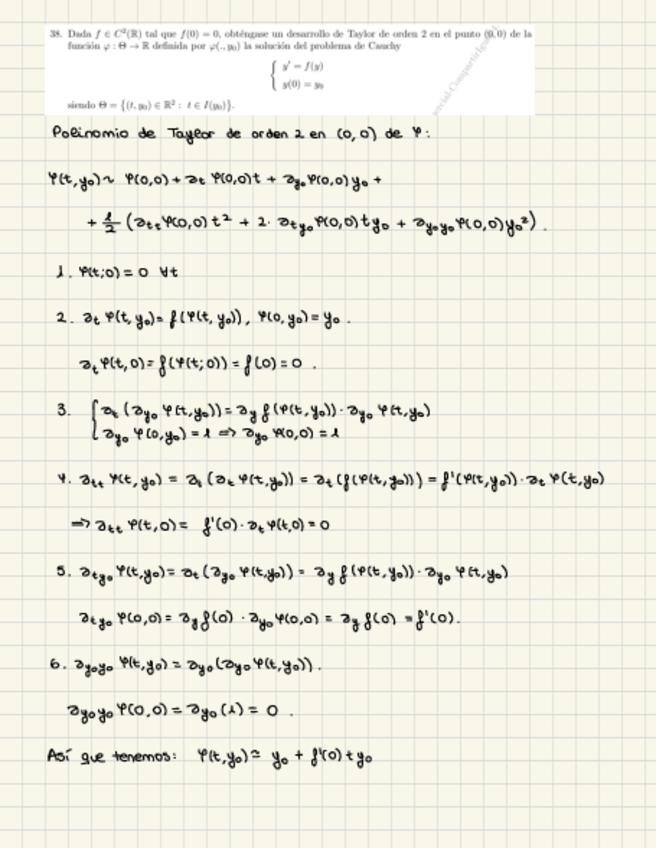 38. Dada f ∈ C²(ℝ) tal que f(0) = 0, obténgase un desarrollo de Taylor de orden 2 en el punto (0, 0) de la
función φ : Θ → ℝ definida por φ(., y₀) la solución del problema de Cauchy
{ y' = f(y)
y(0) = y₀
siendo Θ = {(t, y₀) ∈ ℝ² : t ∈ I(y₀)}.
Polinomio de Taylor de orden 2 en (0,0) de φ:
φ(t,y₀) ~ φ(0,0) + ∂t φ(0,0)t + ∂y₀ φ(0,0) y₀ +
+ 1/2 (∂tt φ(0,0) t² + 2· ∂ty₀ φ(0,0) t y₀ + ∂y₀y₀ φ(0,0) y₀²).
1. φ(t;0) = 0 ∀t
2. ∂t φ(t,y₀) = f(φ(t,y₀)), φ(0,y₀) = y₀.
∂t φ(t,0) = f(φ(t;0)) = f(0) = 0.
3. { ∂t (∂y₀ φ(t,y₀)) = ∂y f(φ(t,y₀))· ∂y₀ φ(t,y₀)
∂y₀ φ(0,y₀) = 1 ⇒ ∂y₀ φ(0,0) = 1
4. ∂tt φ(t,y₀) = ∂t (∂t φ(t,y₀)) = ∂t (f(φ(t,y₀))) = f'(φ(t,y₀))· ∂t φ(t,y₀)
⇒ ∂tt φ(t,0) = f'(0)· ∂t φ(t,0) = 0
5. ∂ty₀ φ(t,y₀) = ∂t (∂y₀ φ(t,y₀)) = ∂y f(φ(t,y₀))· ∂y₀ φ(t,y₀)
∂ty₀ φ(0,0) = ∂y f(0) · ∂y₀ φ(0,0) = ∂y f(0) = f'(0).
6. ∂y₀y₀ φ(t,y₀) = ∂y₀ (∂y₀ φ(t,y₀)).
∂y₀y₀ φ(0,0) = ∂y₀ (1) = 0.
Así que tenemos: φ(t,y₀) ≃ y₀ + f'(0) t y₀